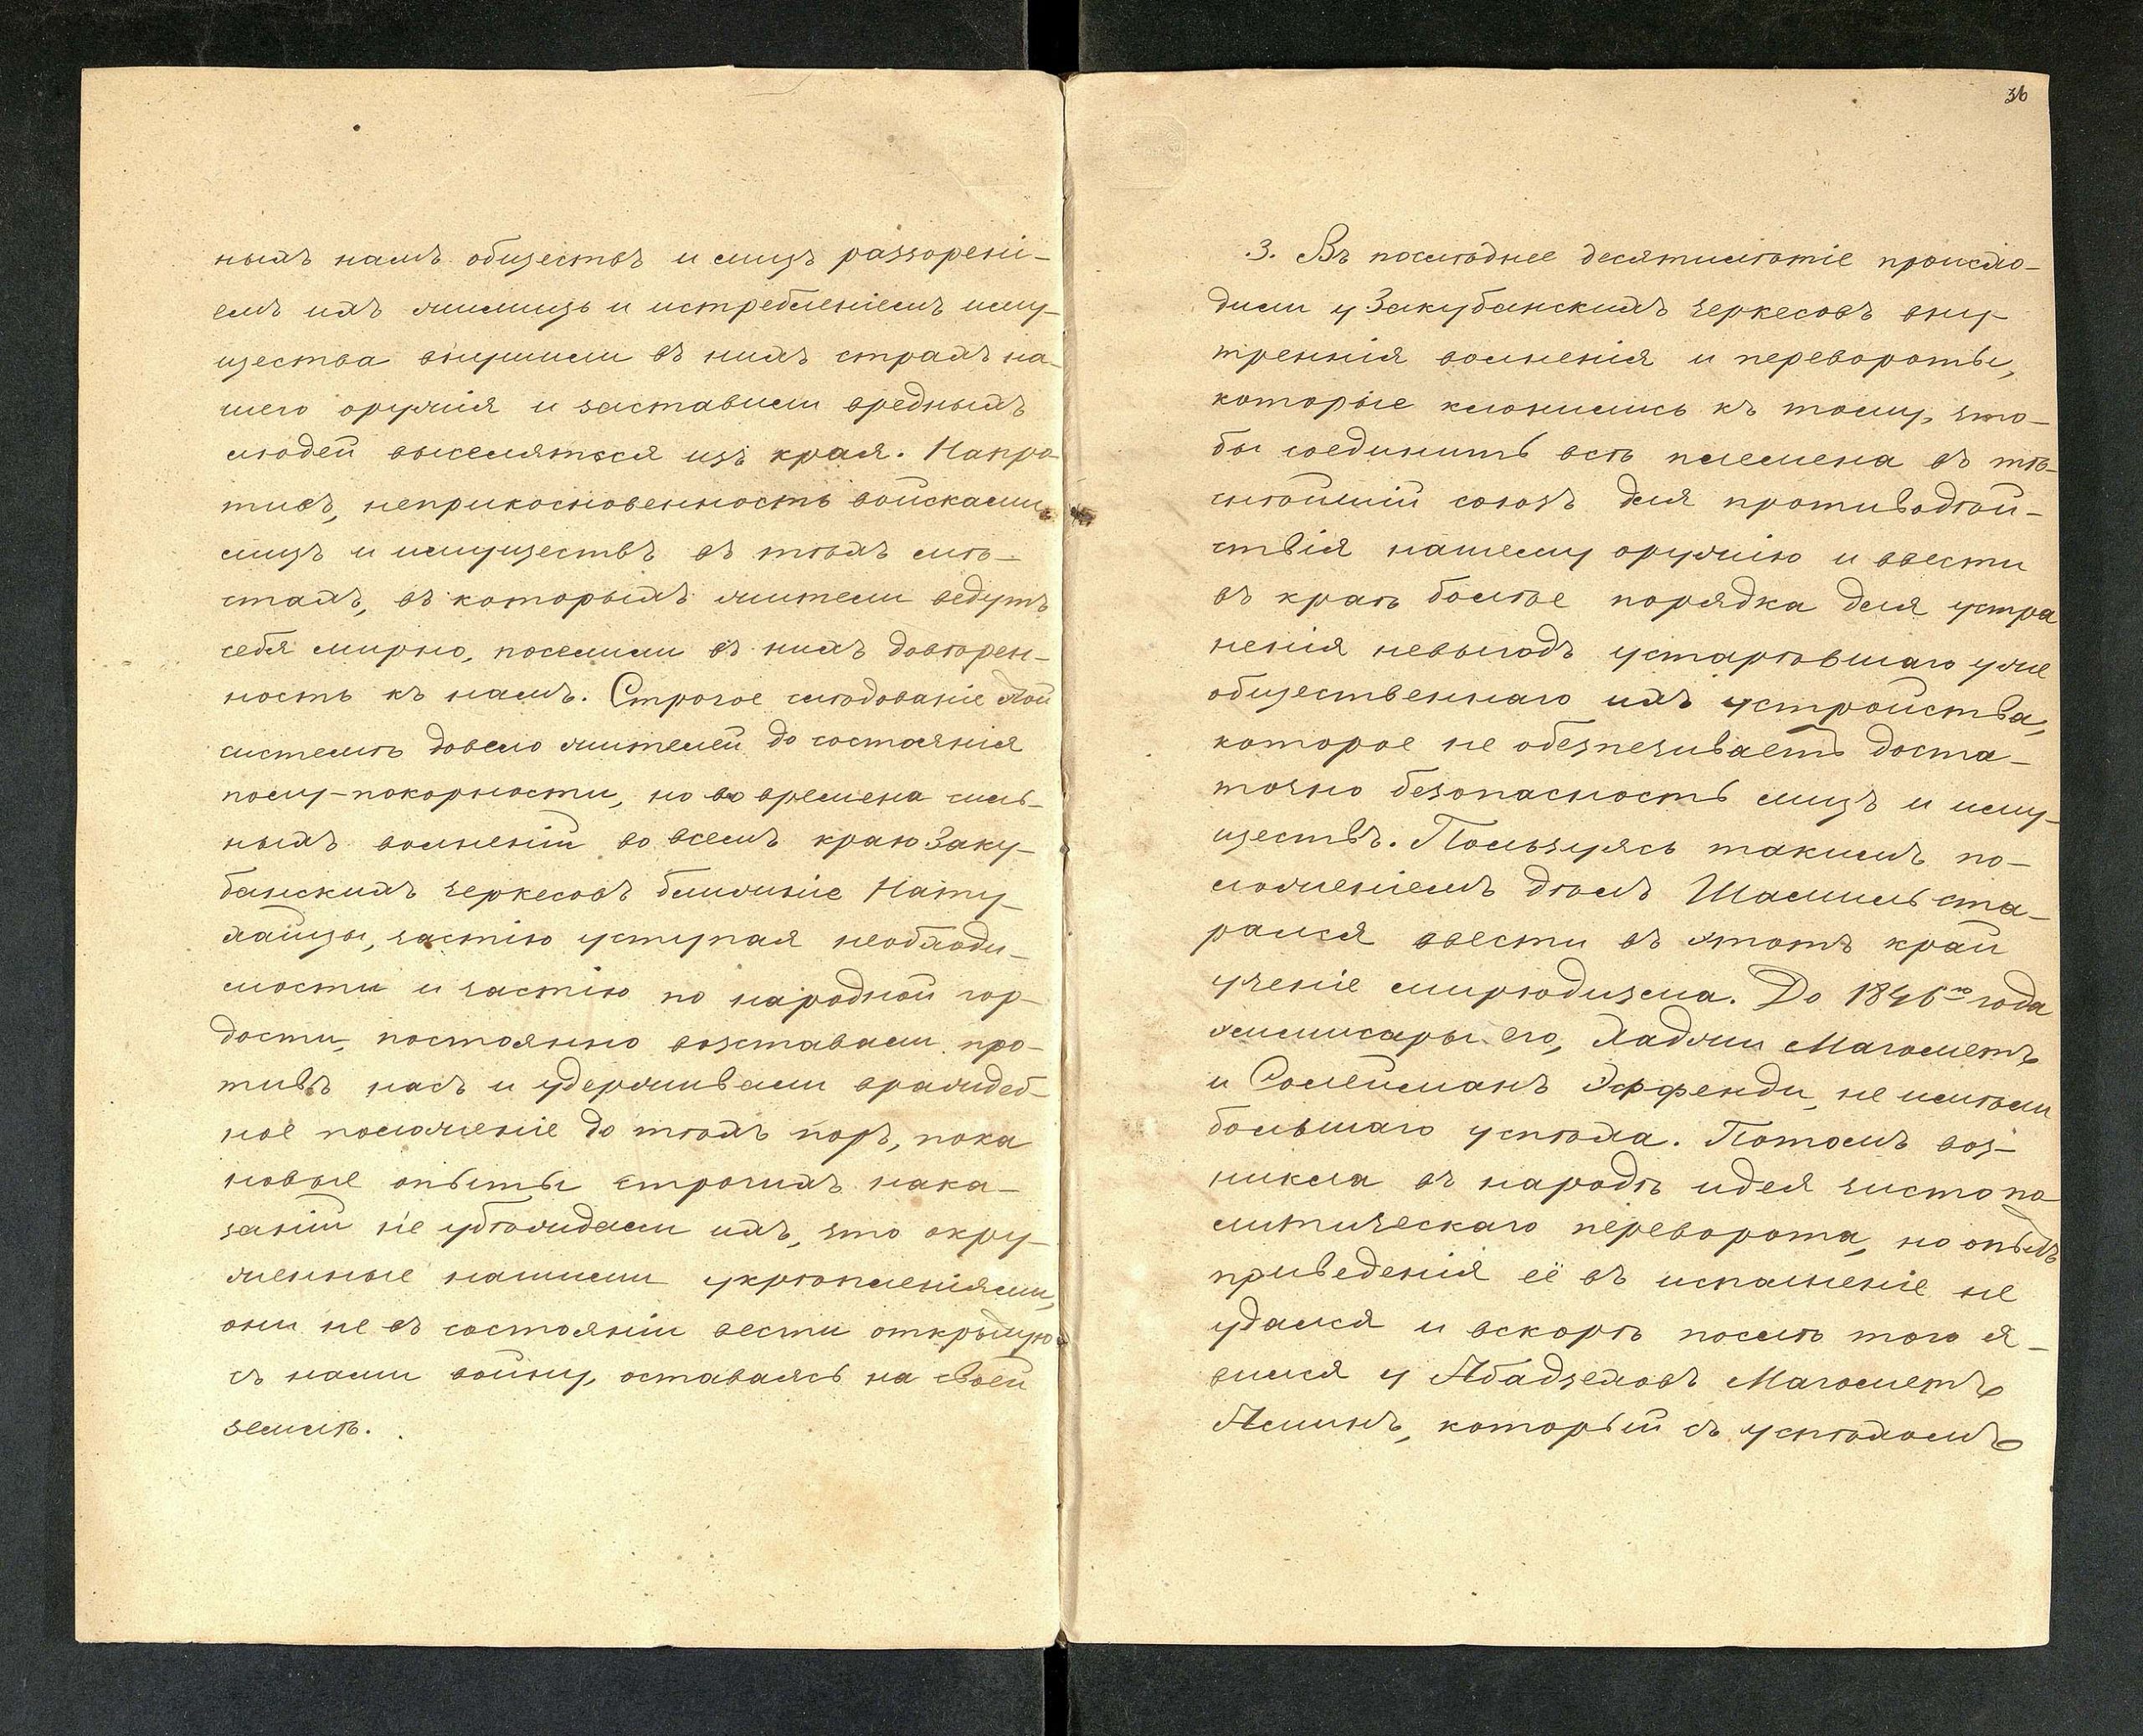 ныхъ намъ обществъ и лицъ раззорені-
емъ ихъ жилищъ и истребленіемъ иму-
щества внушили въ нихъ страхъ на-
шего оружія и заставили вредныхъ
людей выселяться изъ края. Напро-
тивъ, неприкосновенность войсками
лицъ и имуществъ въ тѣхъ мѣ-
стахъ, въ которыхъ жители ведутъ
себя мирно, поселили въ нихъ довѣрен-
ность къ намъ. Строгое слѣдованіе этой
системѣ довело жителей до состоянія
полу-покорности, но во времена силь-
ныхъ волненій во всемъ краю Заку-
банскихъ черкесовъ ближніе Нату-
хайцы, частію уступая необходи-
мости и частію по народной гор-
дости, постоянно возставали про-
тивъ насъ и удерживали враждеб-
ное положеніе до тѣхъ поръ, пока
новые опыты строгихъ нака-
заній не убѣждали ихъ, что окру-
женные нашими укрѣпленіями,
они не въ состояніи вести открытую
съ нами войну, оставаясь на своей
землѣ.
36
3. Въ послѣднее десятилѣтіе происхо-
дили у Закубанскихъ черкесовъ вну-
треннія волненія и перевороты,
которые клонились къ тому, что-
бы соединить всѣ племена въ тѣ-
снѣйшій союзъ для противодѣй-
ствія нашему оружію и ввести
въ краѣ болѣе порядка для устра
ненія невыгодъ устарѣвшаго уже
общественнаго ихъ устройства,
которое не обезпечиваетъ доста-
точно безопасность лицъ и иму-
ществъ. Пользуясь такимъ по-
ложеніемъ дѣлъ Шамиль ста-
рался ввести въ этотъ край
ученіе мирюдизма. До 1846го года
эмиссары его, Хаджи Магометъ
и Солейманъ Эффенди, не имѣли
большаго успѣха. Потомъ воз-
никла въ народѣ идея чисто по
литическаго переворота, но опытъ
приведенія её въ исполненіе не
удался и вскорѣ послѣ того я-
вился у Абадзеховъ Магометъ
Аминъ, который съ успѣхомъ